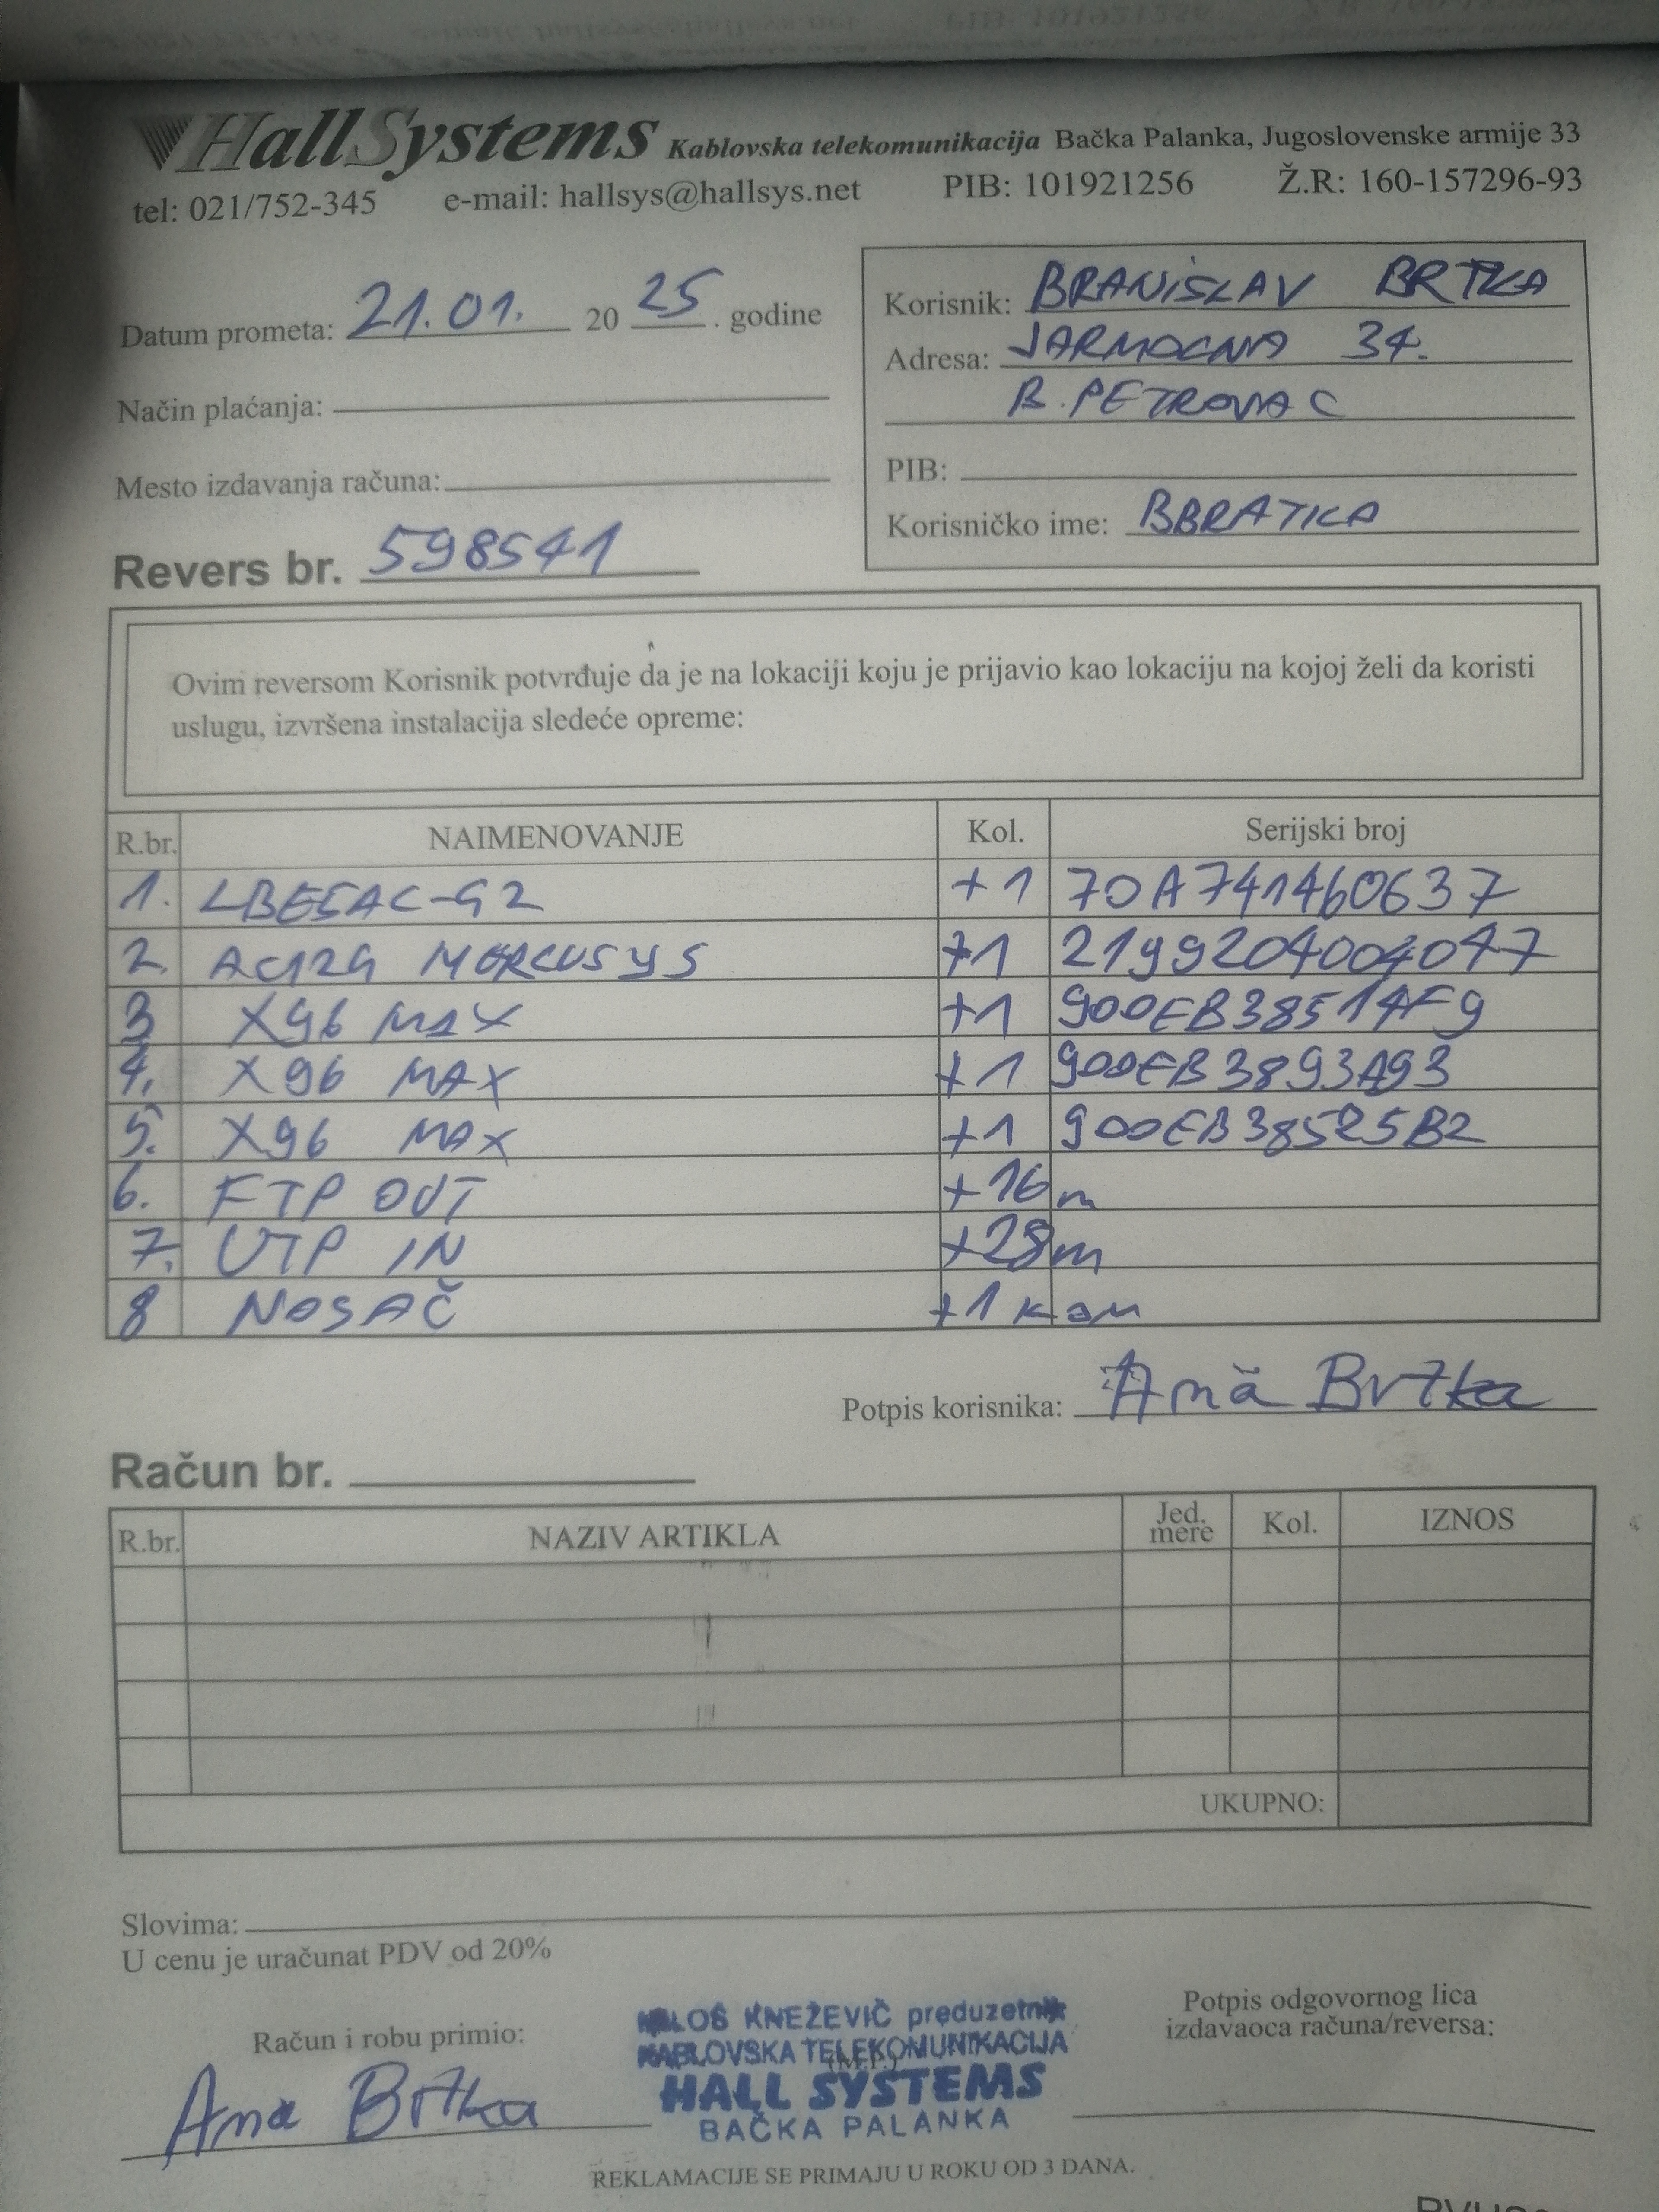 HallSystems Kablovska telekomunikacija Bačka Palanka, Jugoslovenske armije 33
tel: 021/752-345 e-mail: hallsys@hallsys.net PIB: 101921256 Ž.R: 160-157296-93
Datum prometa: 21.01. 20 25. godine
Način plaćanja:
Mesto izdavanja računa:
Korisnik: BRANISLAV BRTKA
Adresa: JARMOCNA 34.
B. PETROVAC
PIB:
Korisničko ime: BBRATKA
Revers br. 598541
Ovim reversom Korisnik potvrđuje da je na lokaciji koju je prijavio kao lokaciju na kojoj želi da koristi
uslugu, izvršena instalacija sledeće opreme:
R.br. NAIMENOVANJE Kol. Serijski broj
1. LBE5AC-G2 +1 70A741460637
2. AC12G MERCUSYS +1 2199204004047
3 X96 MAX +1 900EB38514F9
4. X96 MAX +1 900EB3893A93
5. X96 MAX +1 900EB38525B2
6. FTP OUT +16m
7. UTP IN +28m
8 NOSAČ +1 kom
Potpis korisnika: Ana Brtka
Račun br.
R.br. NAZIV ARTIKLA Jed. mere Kol. IZNOS
UKUPNO:
Slovima:
U cenu je uračunat PDV od 20%
Račun i robu primio:
Ana Brtka
MILOŠ KNEŽEVIČ preduzetnik
KABLOVSKA TELEKOMUNIKACIJA
(M.P.)
HALL SYSTEMS
BAČKA PALANKA
Potpis odgovornog lica
izdavaoca računa/reversa:
REKLAMACIJE SE PRIMAJU U ROKU OD 3 DANA.